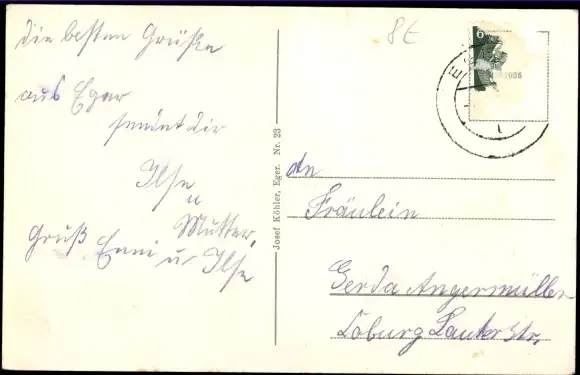 die besten Grüße
aus Eger
sendet dir
Ilse
u
Mutter,
Gruß Enni u Ilse
Josef Köhler, Eger. Nr. 23
8 E
6
E
1936
An
Fräulein
Gerda Angermüller
Coburg Lauterstr.